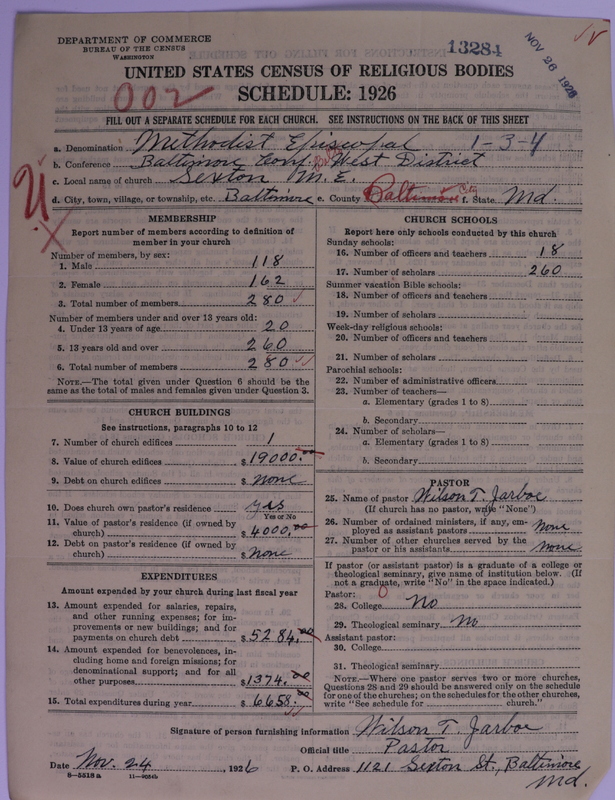 DEPARTMENT OF COMMERCE
BUREAU OF THE CENSUS
WASHINGTON
13284
NOV 26 1926
UNITED STATES CENSUS OF RELIGIOUS BODIES
SCHEDULE: 1926
002
FILL OUT A SEPARATE SCHEDULE FOR EACH CHURCH. SEE INSTRUCTIONS ON THE BACK OF THIS SHEET
a. Denomination Methodist Episcopal 1-3-4
b. Conference Baltimore Conf. West District
c. Local name of church Sexton M.E.
d. City, town, village, or township, etc. Baltimore e. County Baltimore City f. State Md.
MEMBERSHIP
Report number of members according to definition of member in your church
Number of members, by sex:
1. Male 118
2. Female 162
3. Total number of members 280
Number of members under and over 13 years old:
4. Under 13 years of age 20
5. 13 years old and over 260
6. Total number of members 280
NOTE.—The total given under Question 6 should be the same as the total of males and females given under Question 3.
CHURCH BUILDINGS
See instructions, paragraphs 10 to 12
7. Number of church edifices 1
8. Value of church edifices $19000.00
9. Debt on church edifices $none
10. Does church own pastor's residence yes
Yes or No
11. Value of pastor's residence (if owned by church) $4000.00
12. Debt on pastor's residence (if owned by church) $none
EXPENDITURES
Amount expended by your church during last fiscal year
13. Amount expended for salaries, repairs, and other running expenses; for improvements or new buildings; and for payments on church debt $5284.00
14. Amount expended for benevolences, including home and foreign missions; for denominational support; and for all other purposes $1374.00
15. Total expenditures during year $6658.00
CHURCH SCHOOLS
Report here only schools conducted by this church
Sunday schools:
16. Number of officers and teachers 18
17. Number of scholars 260
Summer vacation Bible schools:
18. Number of officers and teachers
19. Number of scholars
Week-day religious schools:
20. Number of officers and teachers
21. Number of scholars
Parochial schools:
22. Number of administrative officers
23. Number of teachers—
a. Elementary (grades 1 to 8)
b. Secondary
24. Number of scholars—
a. Elementary (grades 1 to 8)
b. Secondary
PASTOR
25. Name of pastor Wilson T. Jarboe
(If church has no pastor, write "None")
26. Number of ordained ministers, if any, employed as assistant pastors none
27. Number of other churches served by the pastor or his assistants none
If pastor (or assistant pastor) is a graduate of a college or theological seminary, give name of institution below. (If not a graduate, write "No" in the space indicated.)
Pastor:
28. College No
29. Theological seminary No
Assistant pastor:
30. College
31. Theological seminary
NOTE.—Where one pastor serves two or more churches, Questions 28 and 29 should be answered only on the schedule for one of the churches; on the schedules for the other churches, write "See schedule for church."
Signature of person furnishing information Wilson T. Jarboe
Official title Pastor
Date Nov. 24, 1926 P. O. Address 1121 Sexton St., Baltimore
Md.
8—5318 a